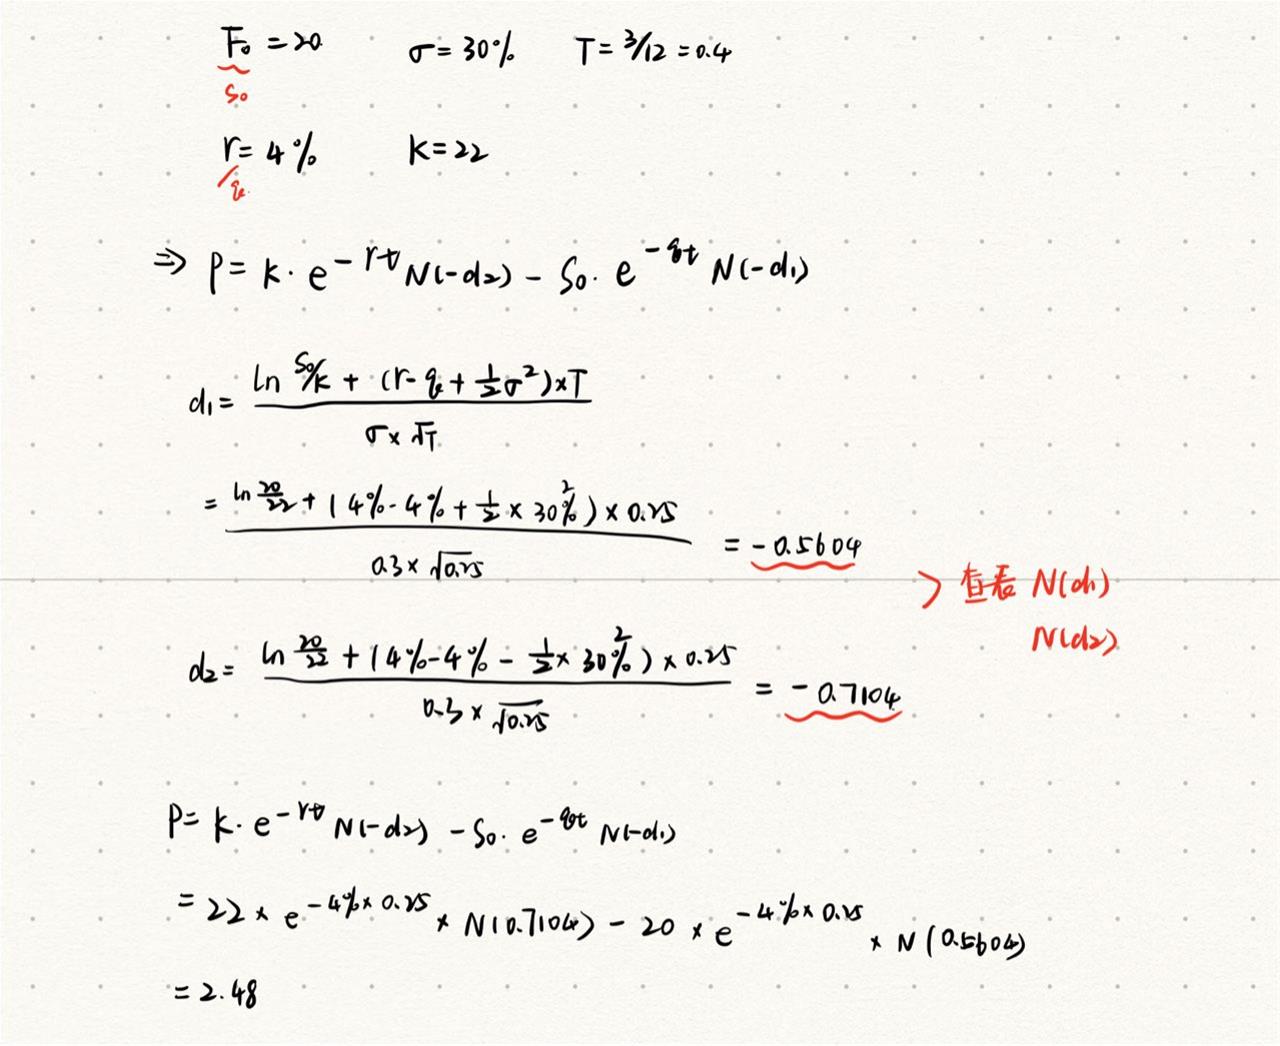 F₀ = 20    σ = 30%    T = 3/12 = 0.4
S₀
r = 4%    K = 22
q
⇒ P = K · e^(-rt) N(-d₂) - S₀ · e^(-qt) N(-d₁)
d₁ = (ln S₀/K + (r - q + ½σ²) × T) / (σ × √T)
= (ln 20/22 + (4% - 4% + ½ × 30%²) × 0.25) / (0.3 × √0.25) = -0.5604
> 查表 N(d₁)
N(d₂)
d₂ = (ln 20/22 + (4% - 4% - ½ × 30%²) × 0.25) / (0.3 × √0.25) = -0.7104
P = K · e^(-rt) N(-d₂) - S₀ · e^(-qt) N(-d₁)
= 22 × e^(-4% × 0.25) × N(0.7104) - 20 × e^(-4% × 0.25) × N(0.5604)
= 2.48